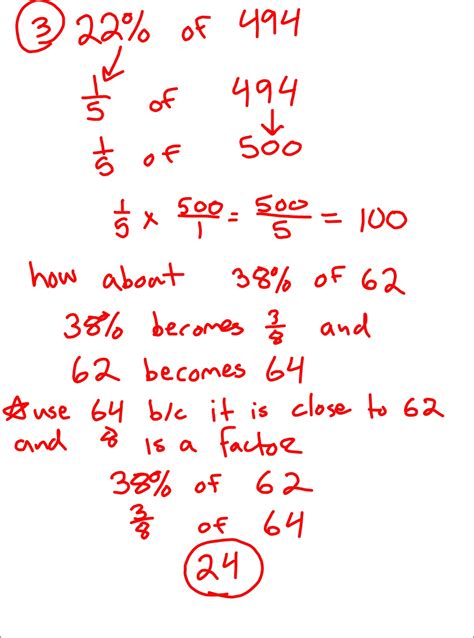 3 22% of 494
1/5 of 494
1/5 of 500
1/5 x 500/1 = 500/5 = 100
how about 38% of 62
38% becomes 3/8 and
62 becomes 64
☆use 64 b/c it is close to 62
and 8 is a factor
38% of 62
3/8 of 64
24